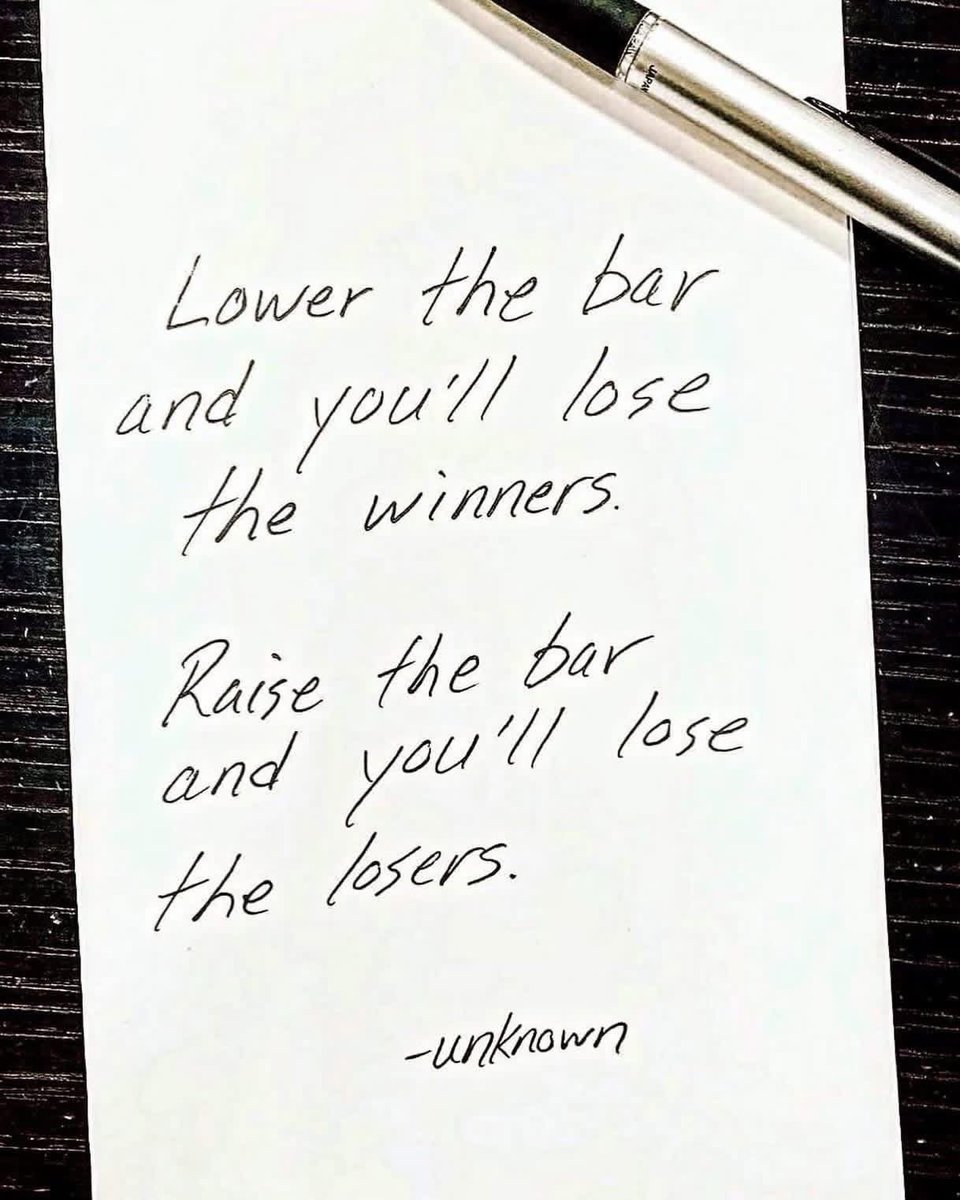 JAPAN
Lower the bar
and you'll lose
the winners.
Raise the bar
and you'll lose
the losers.
-unknown